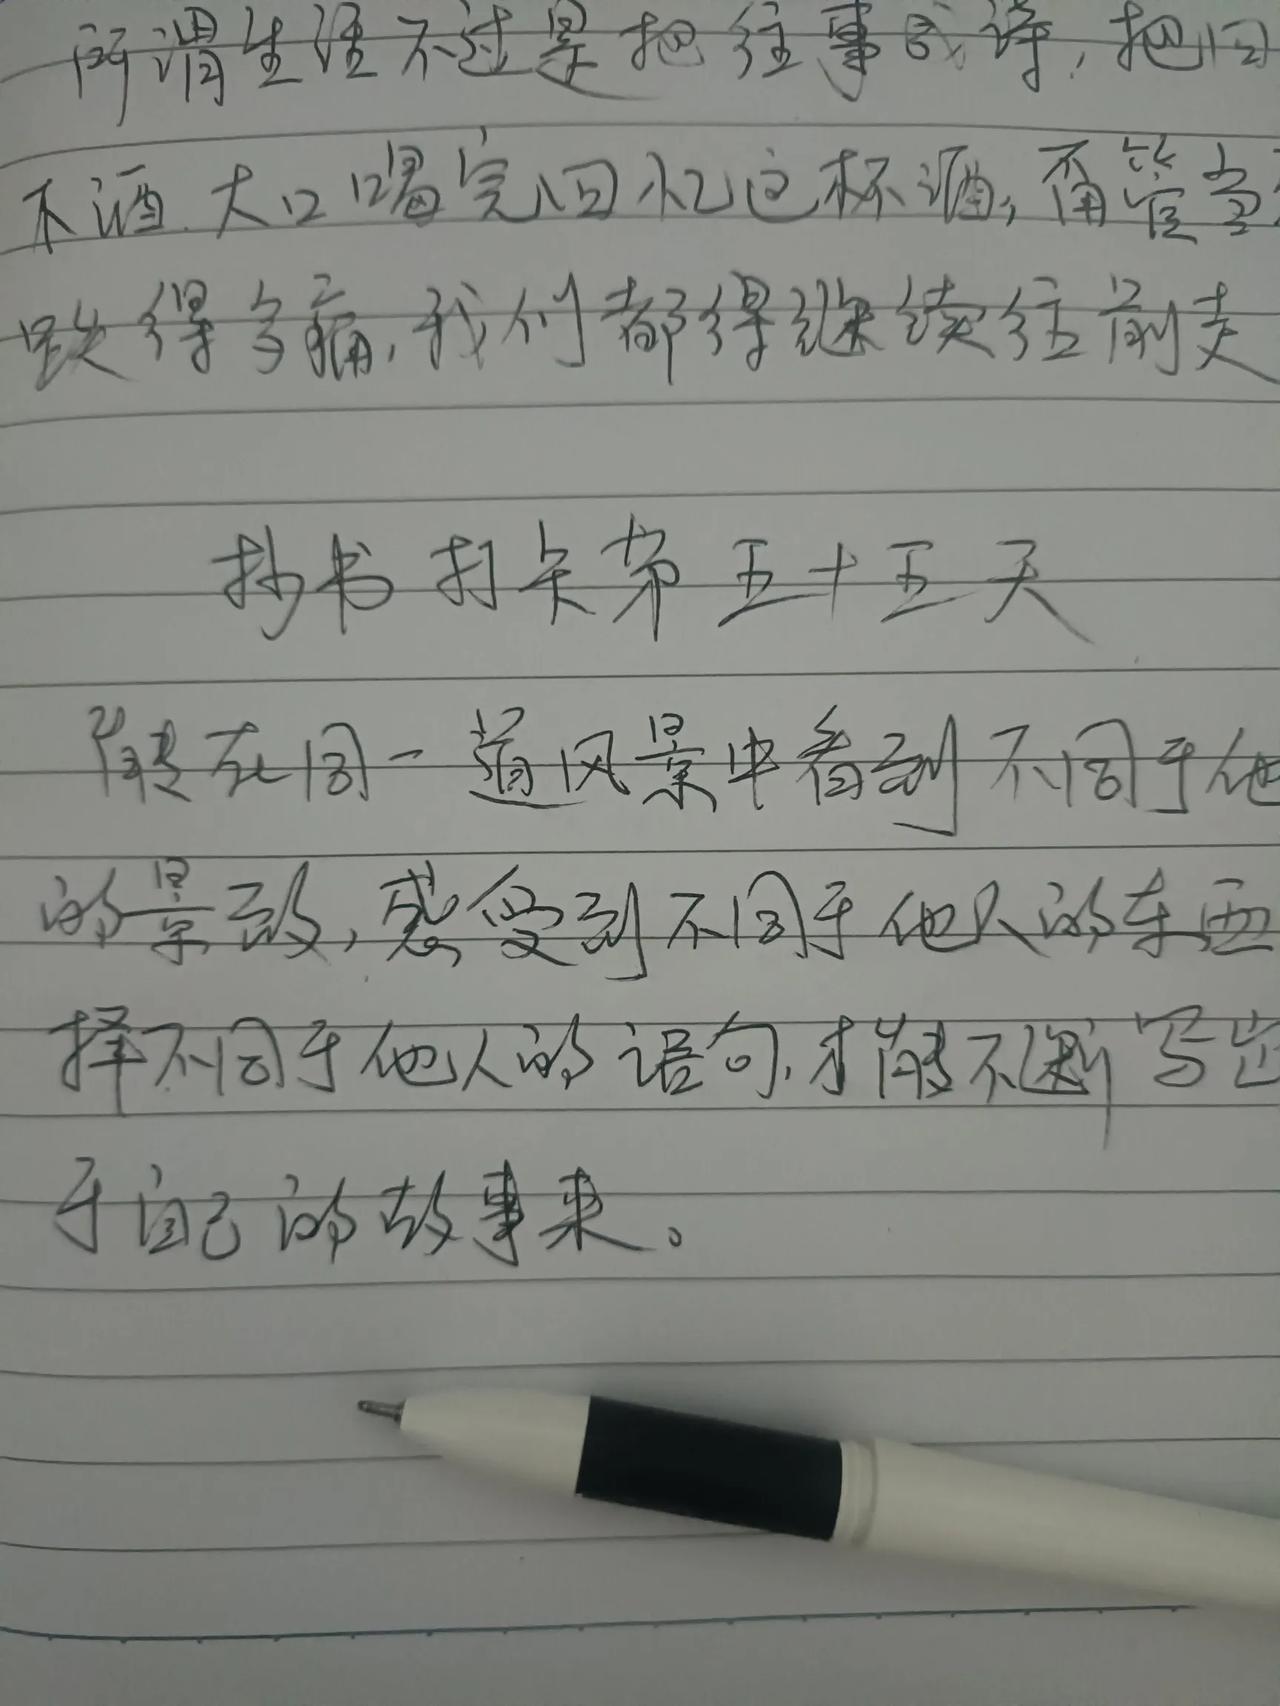 所谓生活不过是把往事成诗,把回
下酒.大口喝完回忆这杯酒,不管当
跌得多痛,我们都得继续往前走
抄书打卡第五十五天
能在同一道风景中看到不同于他
的景致,感受到不同于他人的东西
择不同于他人的语句,才能不断写出
于自己的故事来。